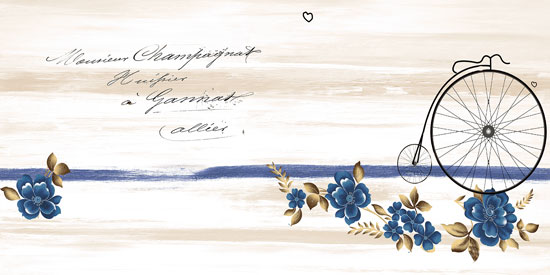 Monsieur Champagnat
Huissier
à Gannat
allier